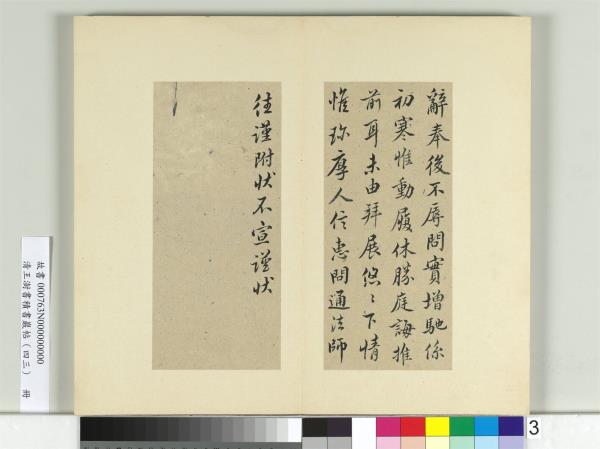 辭奉後不辱問實增馳係
初寒惟動履休勝庭誨推
前耳未由拜展悠〻下情
惟珎厚人信惠問通法師
往謹附狀不宣謹狀
故書 000763N000000000
清王澍書積書巖帖(四三) 冊
3